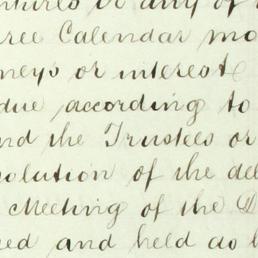 ntures or any of
ree Calendar mo
neys or interest
due according to
nd the Trustees or
olution of the de
Meeting of the D
ed and held as